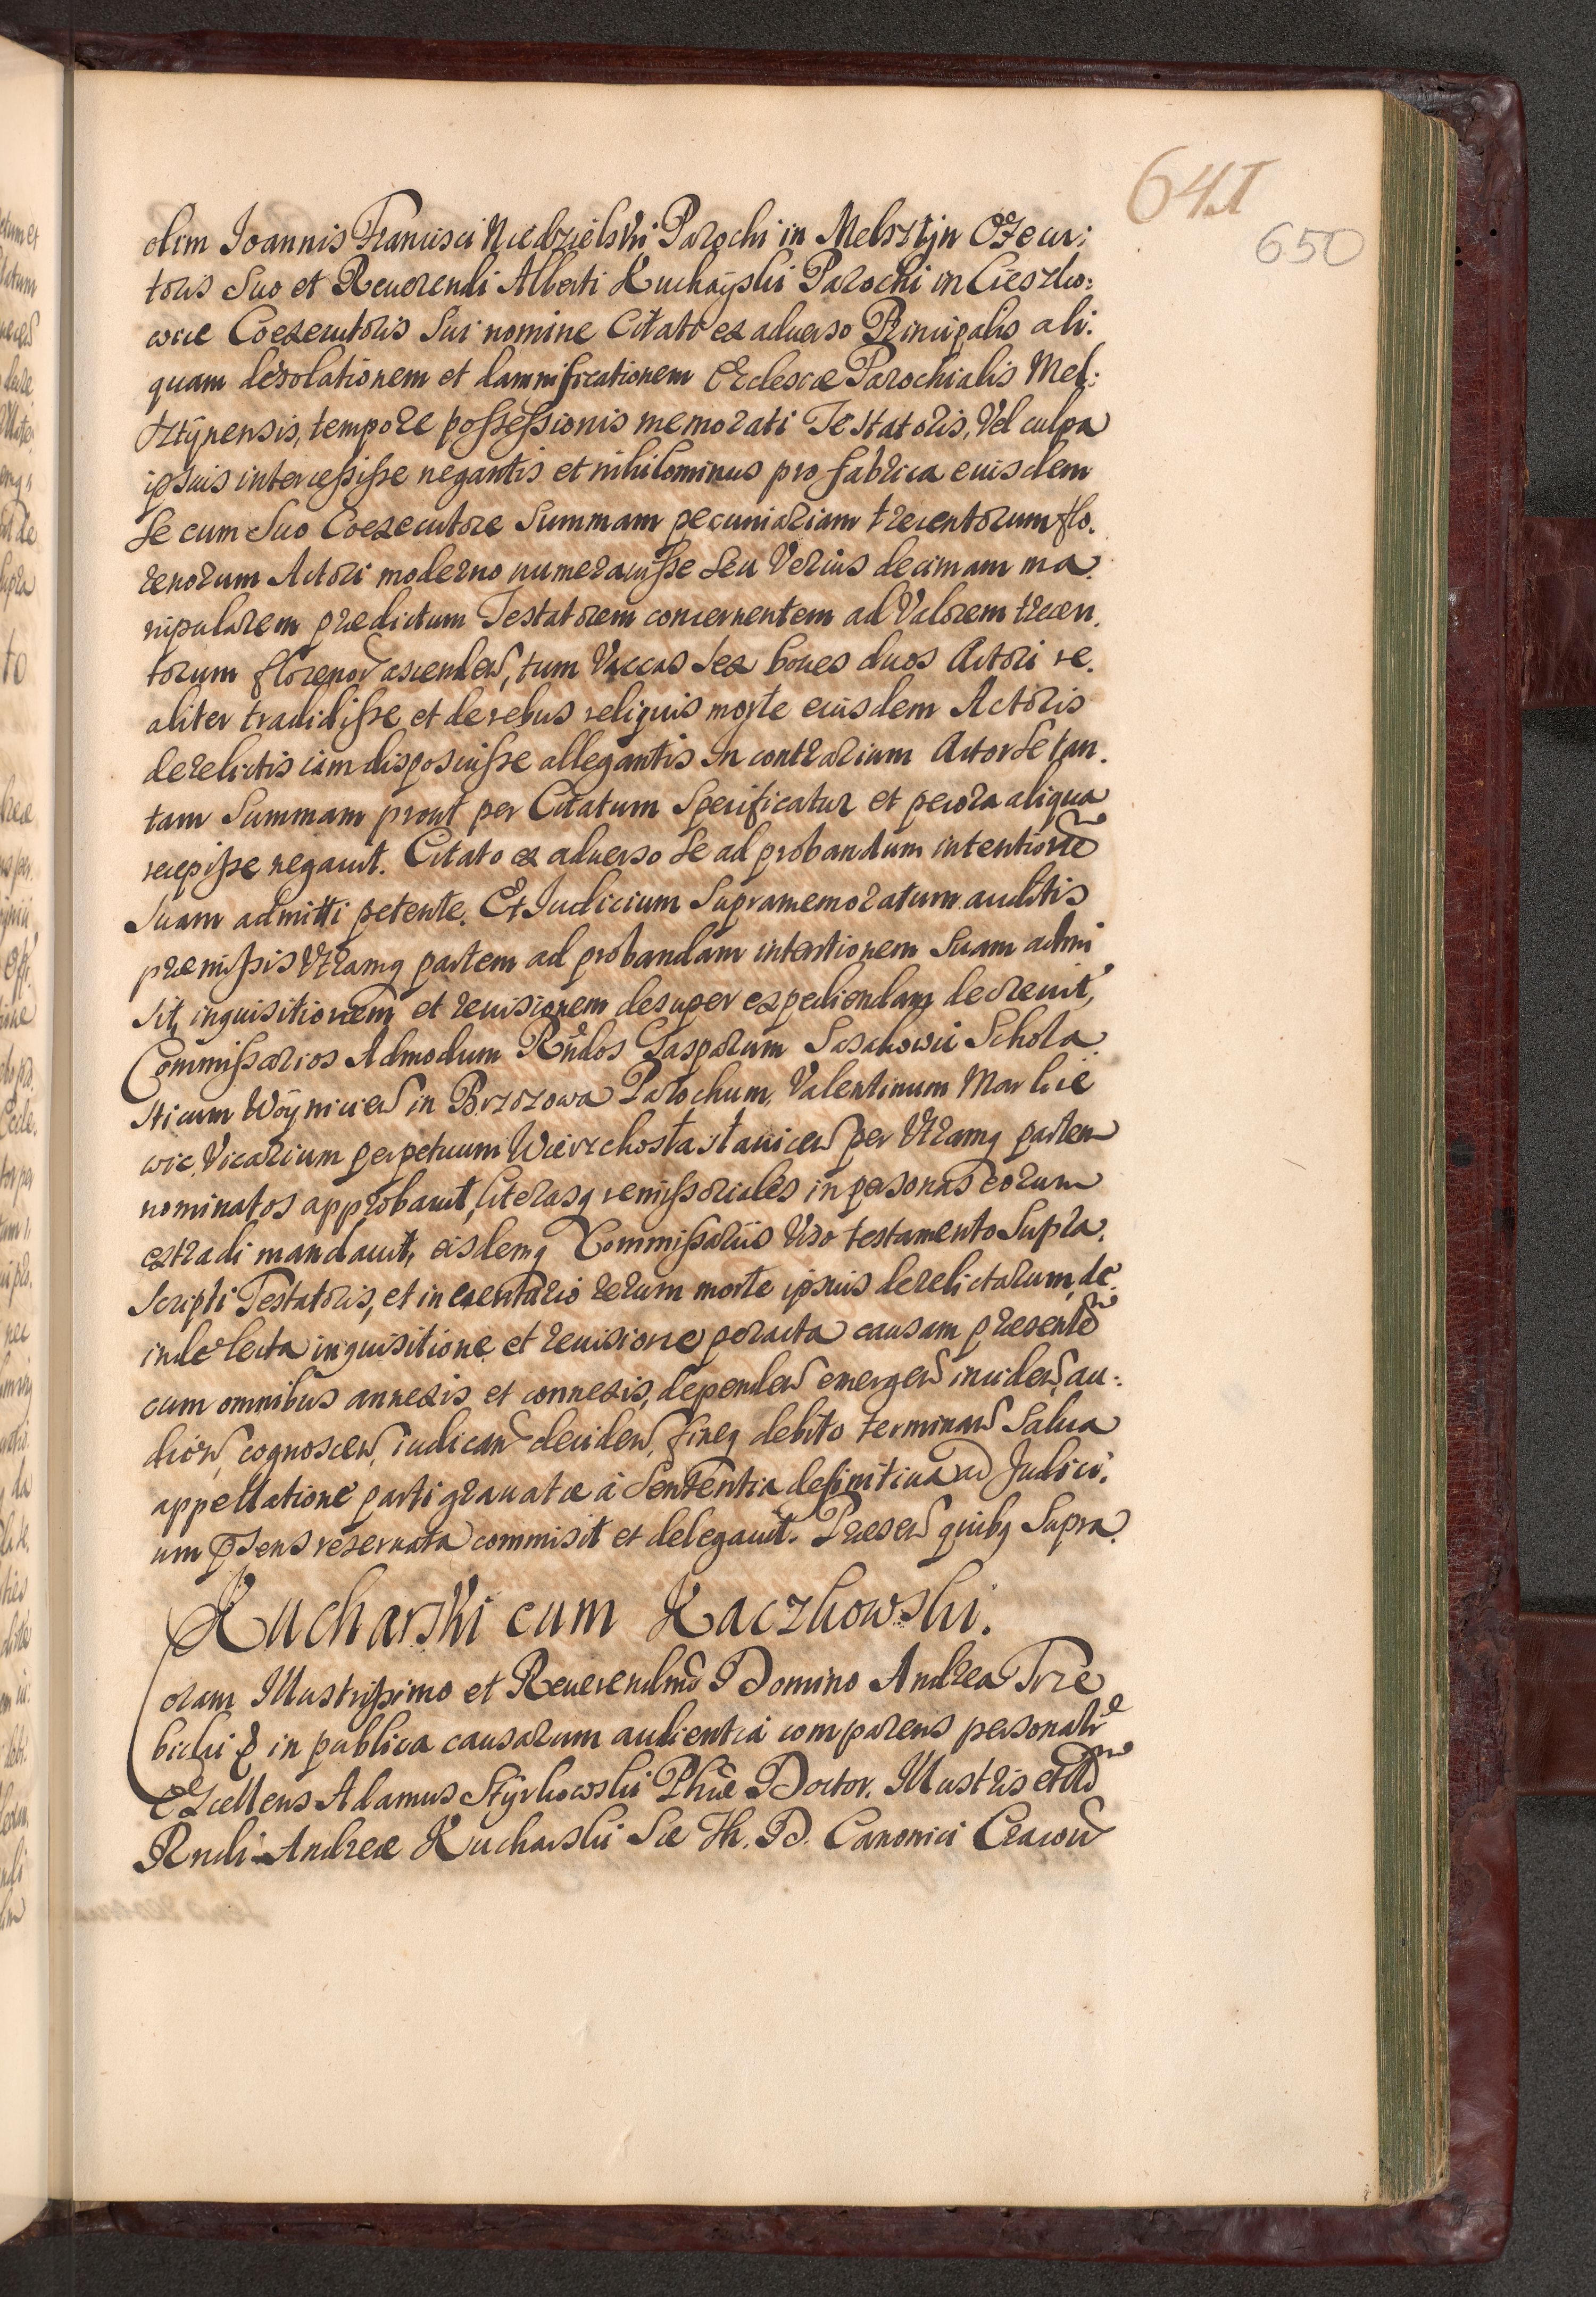 641
650
olim Joannis Francisci Niedzielski Parochi in Melsztÿn Execu:
toris suo et Reuerendi Alberti Kucharski Parochi in Cieszko:
wice Coexecutoris sui nomine Citato ex aduerso Principalis ali:
quam desolationem et damnificationem Ecclesiæ Parochialis Mel:
sztÿnensis, tempore possessionis memorati Testatoris, Vel culpa
ipsius intercessisse negantis et nihilominus pro fabrica eiusdem
se cum suo Coexecutore summam pecuniariam trecentorum flo.
renorum Actori moderno numerauisse seu Verius decimam ma.
nipularem prædictum Testatorem concernentem ad Valorem trecen.
torum florenor ascenden, tum Vaccas sex boues duos Actori re.
aliter tradidisse et de rebus reliquis morte eiusdem Actoris
derelictis iam disposuisse allegantis in contrarium Actor se tan.
tam summam prout per Citatum specificatur et pecora aliqua
recepisse negauit. Citato ex aduerso se ad probandum intentione
suam admitti petente. Et Judicium supramemoratum auditis
præmissis Vtramq partem ad probandam intentionem suam admi
sit, inquisitionem et reuisionem desuper expediendam decreuit,
Commissarios Admodum Rndos Gasparum Sasakowic Schola
sticum Woÿnicien in Brzozowa Parochum, Valentinum Markie
wic, Vicarium perpetuum Wierzchosławicen per Vtramq partem
nominatos approbauit, literasq remissoriales in personas eorum
extradi mandauit, eisdemq Commissariis Viso testamento supra.
scripti Testatoris, et inuentario rerum morte ipsius derelictarum, de
inde lecta inquisitione et reuisione peracta causam præsente
cum omnibus annexis et connexis, dependen emergen inciden, au:
dien, cognoscen, iudican deciden, fineq debito terminan salua
appellatione parti grauatæ à sententia definitiua ad Judici:
um psens reseruata commisit et delegauit. Præsen quibq supra.
Kucharski cum Kaczkowski.
Coram Illustrissimo et Reuerendmo Domino Andrea Trze
bicki & in publica causarum audientia comparens personalr
Excellens Adamus Stÿrkowski Phiæ Doctor. Illustris et Adm
Rndi Andreæ Kucharski Sæ Th. D. Canonici Cracou